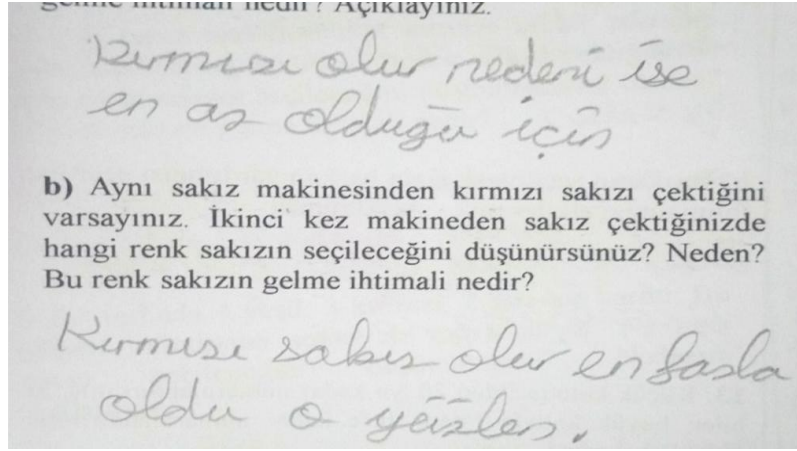 gelme ihtimali nedir? Açıklayınız.
Kırmızı olur nedeni ise
en az olduğu için
b) Aynı sakız makinesinden kırmızı sakızı çektiğini
varsayınız. İkinci kez makineden sakız çektiğinizde
hangi renk sakızın seçileceğini düşünürsünüz? Neden?
Bu renk sakızın gelme ihtimali nedir?
Kırmızı sakız olur en fazla
oldu o yüzden.